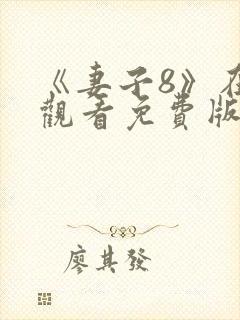 《妻子8》在
觀看免費版
廖其發